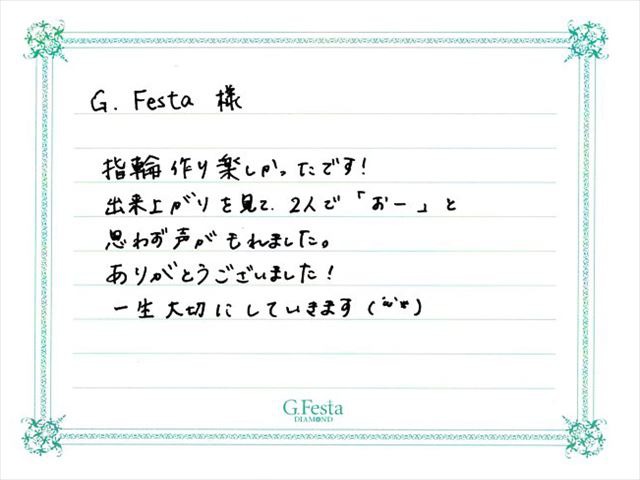 G. Festa 様
指輪作り楽しかったです!
出来上がりを見て、2人で「おー」と
思わず声がもれました。
ありがとうございました!
一生大切にしていきます(^^*)
G.Festa
DIAMOND